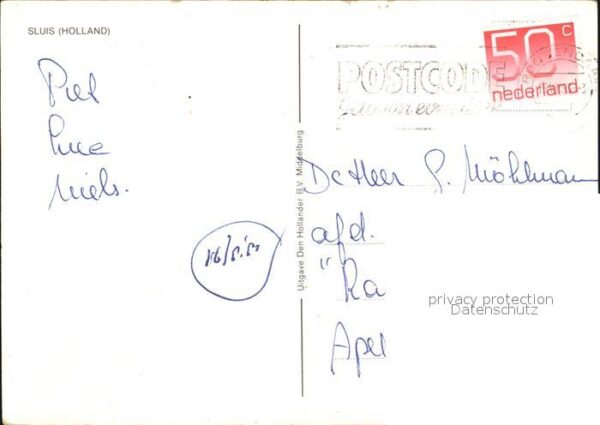 SLUIS (HOLLAND)
Piet
Luce
Niels.
Uitgave Den Hollander B.V. Middelburg
POSTCODE
50 C
nederland
De Heer G. Möhlmann
afd.
"Ka
Apel
privacy protection
Datenschutz